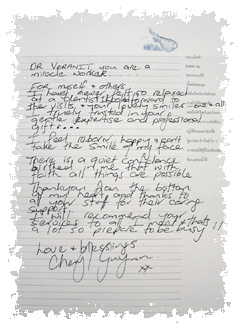 DR VERANIT, you are a
miracle worker.....
For myself + others
I have never felt so relaxed
at a dentist + look forward to
the visits + your lovely smiles
entirely trusted in your
gentle expertise and professional
gifts....
I feel reborn, happy + can't
take the smile off my face
There is a quiet confidence
in me that with
faith all things are possible
Thankyou from the bottom
of my heart and thanks to
all your staff for their caring
support.
I will recommend your
services to all I meet + that's
a lot so prepare to be busy !!
Love + blessings
Cheryl
xx